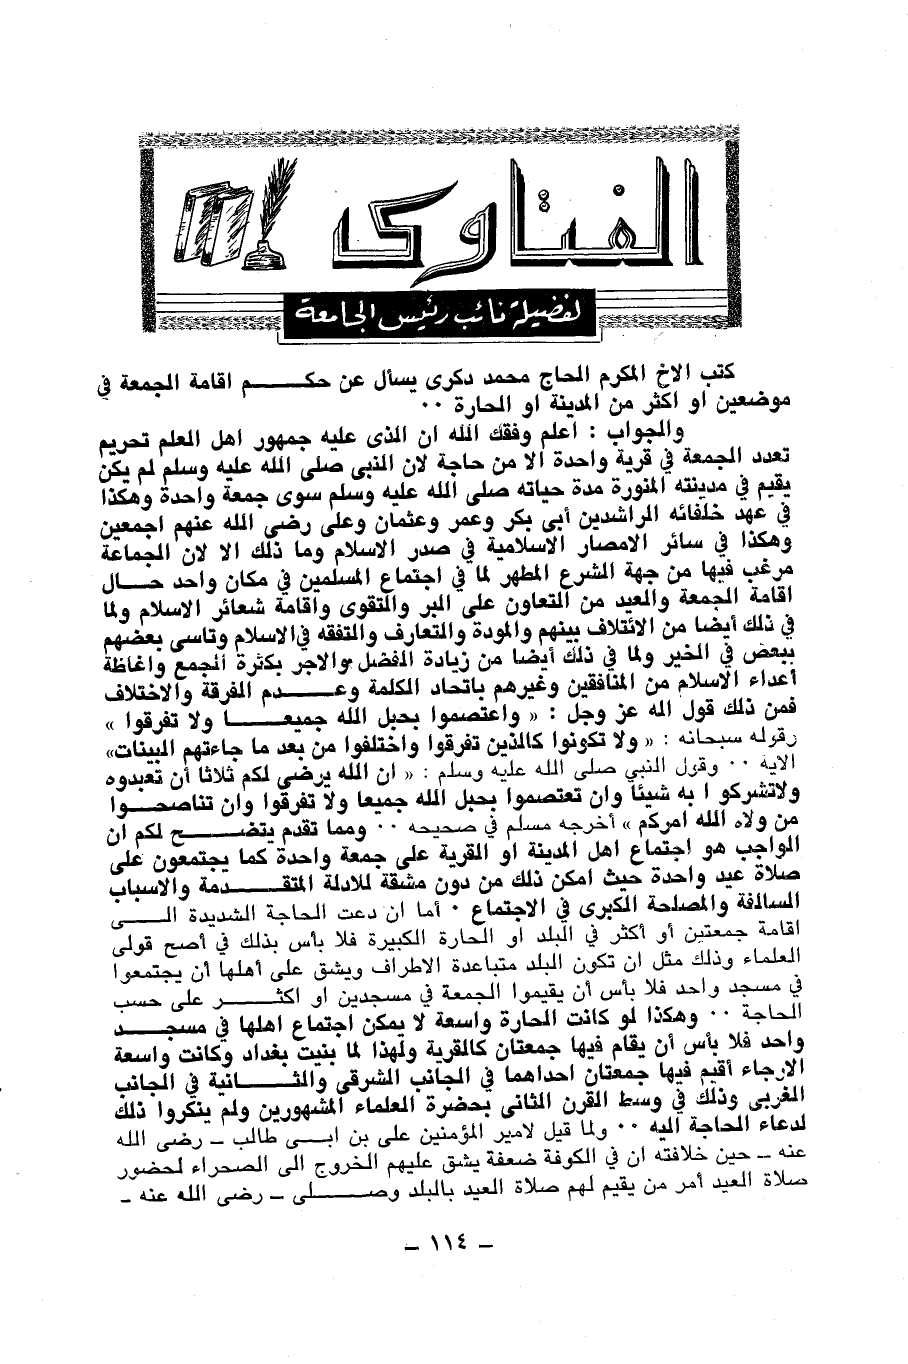 الفتاوى
لفضيلة نائب رئيس الجامعة
كتب الاخ المكرم الحاج محمد دكرى يسأل عن حكم اقامة الجمعة في
موضعين او اكثر من المدينة او الحارة ٠٠
والجواب : اعلم وفقك الله ان الذى عليه جمهور اهل العلم تحريم
تعدد الجمعة في قرية واحدة الا من حاجة لان النبى صلى الله عليه وسلم لم يكن
يقيم في مدينته المنورة مدة حياته صلى الله عليه وسلم سوى جمعة واحدة وهكذا
في عهد خلفائه الراشدين أبى بكر وعمر وعثمان وعلى رضى الله عنهم اجمعين
وهكذا في سائر الامصار الاسلامية في صدر الاسلام وما ذلك الا لان الجماعة
مرغب فيها من جهة الشرع المطهر لما في اجتماع المسلمين في مكان واحد حال
اقامة الجمعة والعيد من التعاون على البر والتقوى واقامة شعائر الاسلام ولما
في ذلك أيضا من الائتلاف بينهم والمودة والتعارف والتفقه في الاسلام وتاسى بعضهم
ببعض في الخير ولما في ذلك أيضا من زيادة الفضل والاجر بكثرة الجمع واغاظة
أعداء الاسلام من المنافقين وغيرهم باتحاد الكلمة وعدم الفرقة والاختلاف
فمن ذلك قول اله عز وجل : « واعتصموا بحبل الله جميعا ولا تفرقوا »
رقوله سبحانه : « ولا تكونوا كالذين تفرقوا واختلفوا من بعد ما جاءتهم البينات»
الاية ٠٠ وقول النبي صلى الله عليه وسلم : « ان الله يرضى لكم ثلاثا أن تعبدوه
ولاتشركو ا به شيئا وان تعتصموا بحبل الله جميعا ولا تفرقوا وان تناصحوا
من ولاه الله امركم » أخرجه مسلم في صحيحه ٠٠ ومما تقدم يتضح لكم ان
الواجب هو اجتماع اهل المدينة او القرية على جمعة واحدة كما يجتمعون على
صلاة عيد واحدة حيث امكن ذلك من دون مشقة للادلة المتقدمة والاسباب
السالفة والمصلحة الكبرى في الاجتماع ٠ أما ان دعت الحاجة الشديدة الى
اقامة جمعتين أو أكثر في البلد او الحارة الكبيرة فلا بأس بذلك في أصح قولى
العلماء وذلك مثل ان تكون البلد متباعدة الاطراف ويشق على أهلها أن يجتمعوا
في مسجد واحد فلا بأس أن يقيموا الجمعة في مسجدين او اكثر على حسب
الحاجة ٠٠ وهكذا لو كانت الحارة واسعة لا يمكن اجتماع اهلها في مسجد
واحد فلا بأس أن يقام فيها جمعتان كالقرية ولهذا لما بنيت بغداد وكانت واسعة
الارجاء أقيم فيها جمعتان احداهما في الجانب الشرقى والثانية في الجانب
الغربى وذلك في وسط القرن الثانى بحضرة العلماء المشهورين ولم ينكروا ذلك
لدعاء الحاجة اليه ٠٠ ولما قيل لامير المؤمنين على بن ابى طالب - رضى الله
عنه - حين خلافته ان في الكوفة ضعفة يشق عليهم الخروج الى الصحراء لحضور
صلاة العيد أمر من يقيم لهم صلاة العيد بالبلد وصلى - رضى الله عنه -
- ١١٤ -